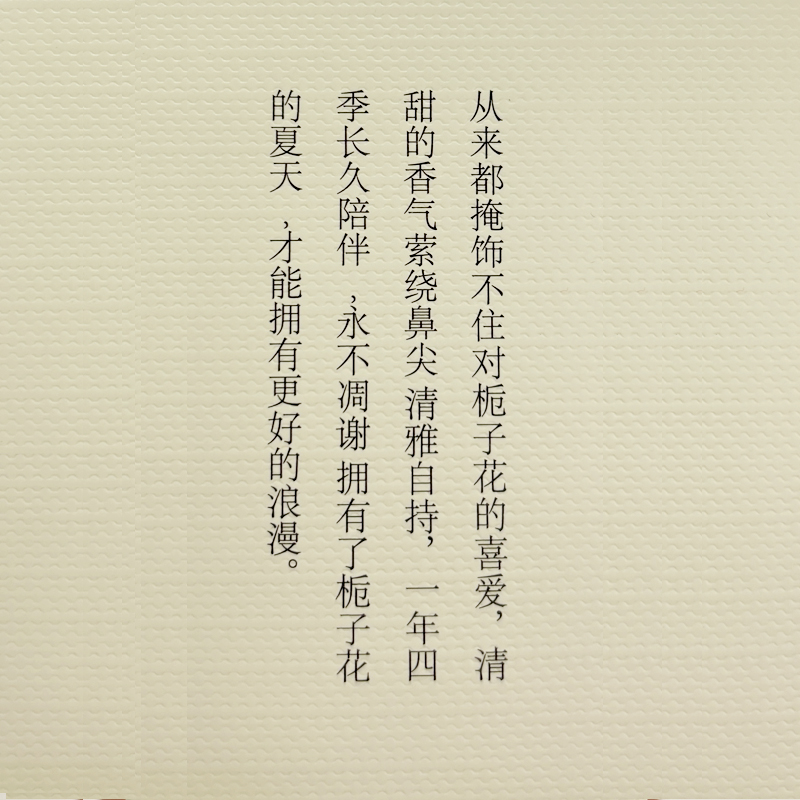 从来都掩饰不住对栀子花的喜爱，清
甜的香气萦绕鼻尖 清雅自持，一年四
季长久陪伴，永不凋谢 拥有了栀子花
的夏天，才能拥有更好的浪漫。